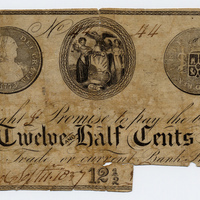 No 44
ight I Promise to pay the b
Twelve and Half Cents
Trade or current Bank
1837 12½